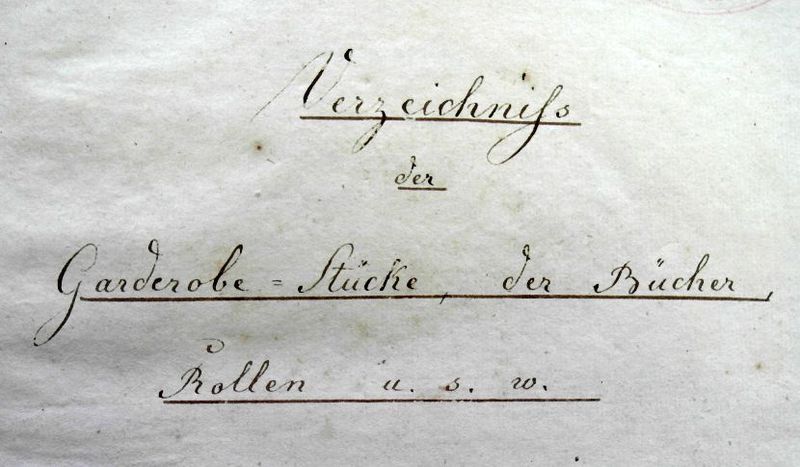 Verzeichniſs
der
Garderobe = Stücke, der Bücher,
Rollen u. s. w.